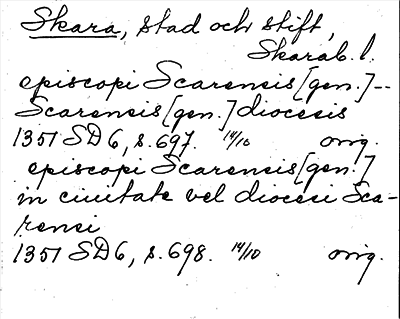 Skara, stad och stift,
Skarab. l.
episcopi Scarensis [gen.] --
Scarensis [gen.] diocesis
1351 SD 6, s. 697. 14/10 orig.
episcopi Scarensis [gen.]
in ciuitate vel diocesi Sca-
rensi
1351 SD 6, s. 698. 14/10 orig.